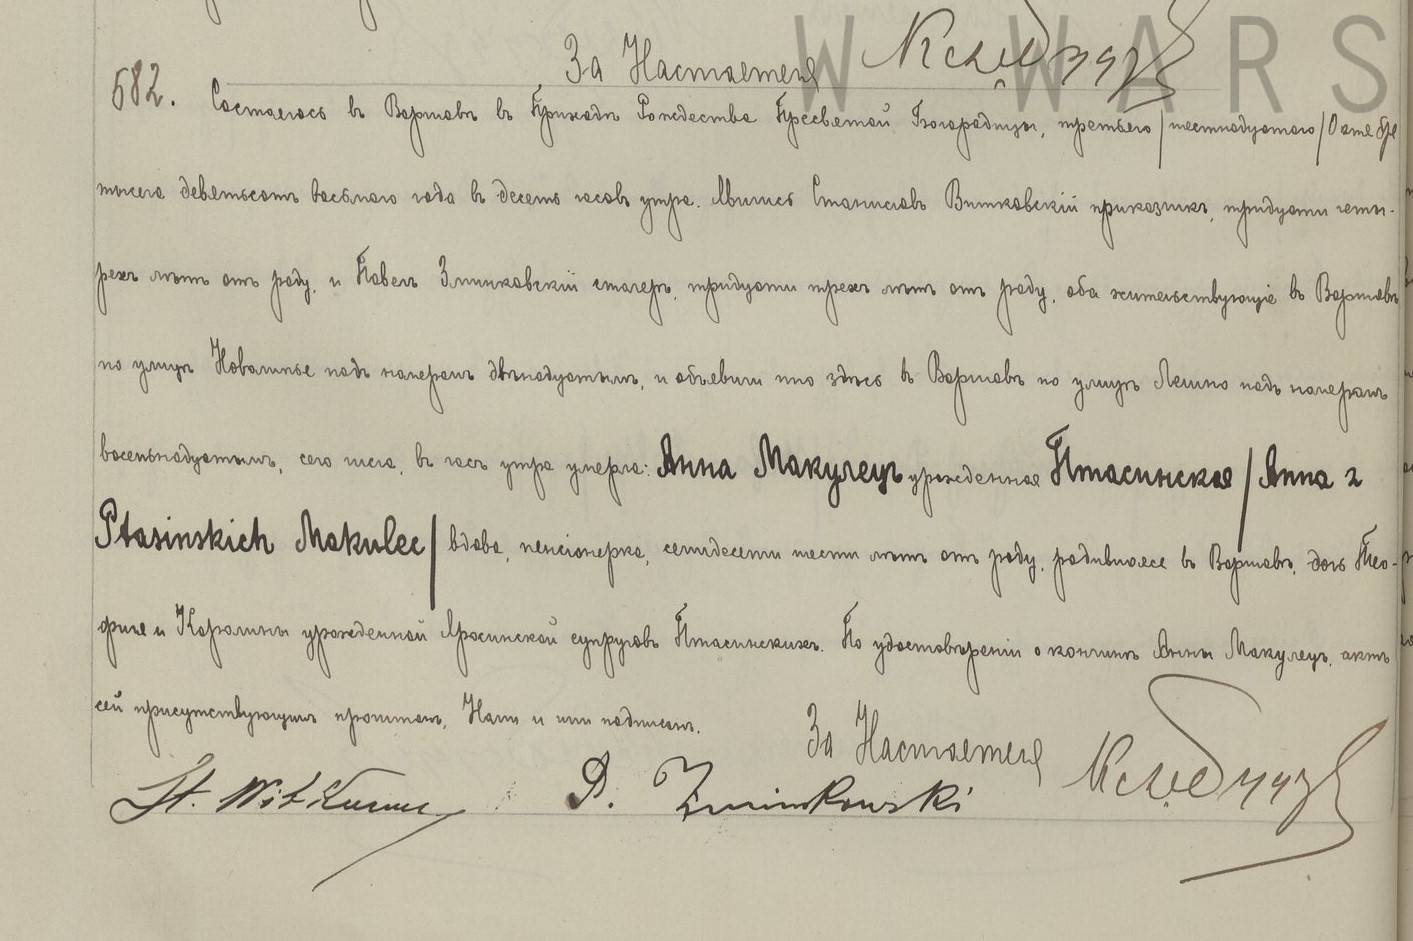 За Настоятеля
W WARS
582.
Состоялось въ Варшавѣ въ Приходѣ Рождества Пресвятой Богородицы, третьяго /шестнадцатаго/ Октября
тысяча девятьсотъ восьмого года въ десять часовъ утра. Явились Станиславъ Витковскій приказчикъ, тридцати четы-
рехъ лѣтъ отъ роду, и Павелъ Зминковскій столяръ, тридцати трехъ лѣтъ отъ роду, оба жительствующіе въ Варшавѣ
по улицѣ Новолипье подъ номеромъ двѣнадцатымъ, и объявили что здѣсь въ Варшавѣ по улицѣ Лешно подъ номеромъ
восемьнадцатымъ, сего числа, въ часъ утра умерла: Анна Макулецъ урожденная Птасинская /Anna z
Ptasinskich Makulec/ вдова, пенсіонерка, семидесяти шести лѣтъ отъ роду, родившаяся въ Варшавѣ, дочь Тео-
филя и Каролины урожденной Яросинской супруговъ Птасинскихъ. По удостовѣреніи о кончинѣ Анны Макулецъ, актъ
сей присутствующимъ прочитанъ, Нами и ими подписанъ.
За Настоятеля
St. P. Zminkowski